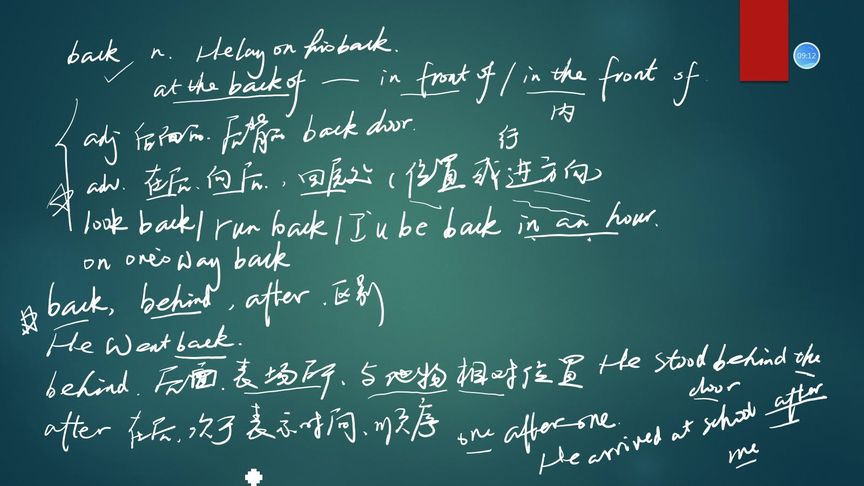 back n. He lay on his back.
at the back of — in front of / in the front of.
内
adj 后面后. back door.
行
adv. 在后. 向后. , 回原处 (位置或进方向)
look back / run back / I'll be back in an hour.
on one's way back
back, behind, after. 区别
He went back.
behind. 后面. 表场所, 与地物相对位置 He stood behind the
door
after 在后, 次于 表示时间、顺序 one after one.
He arrived at school after
me
09:12